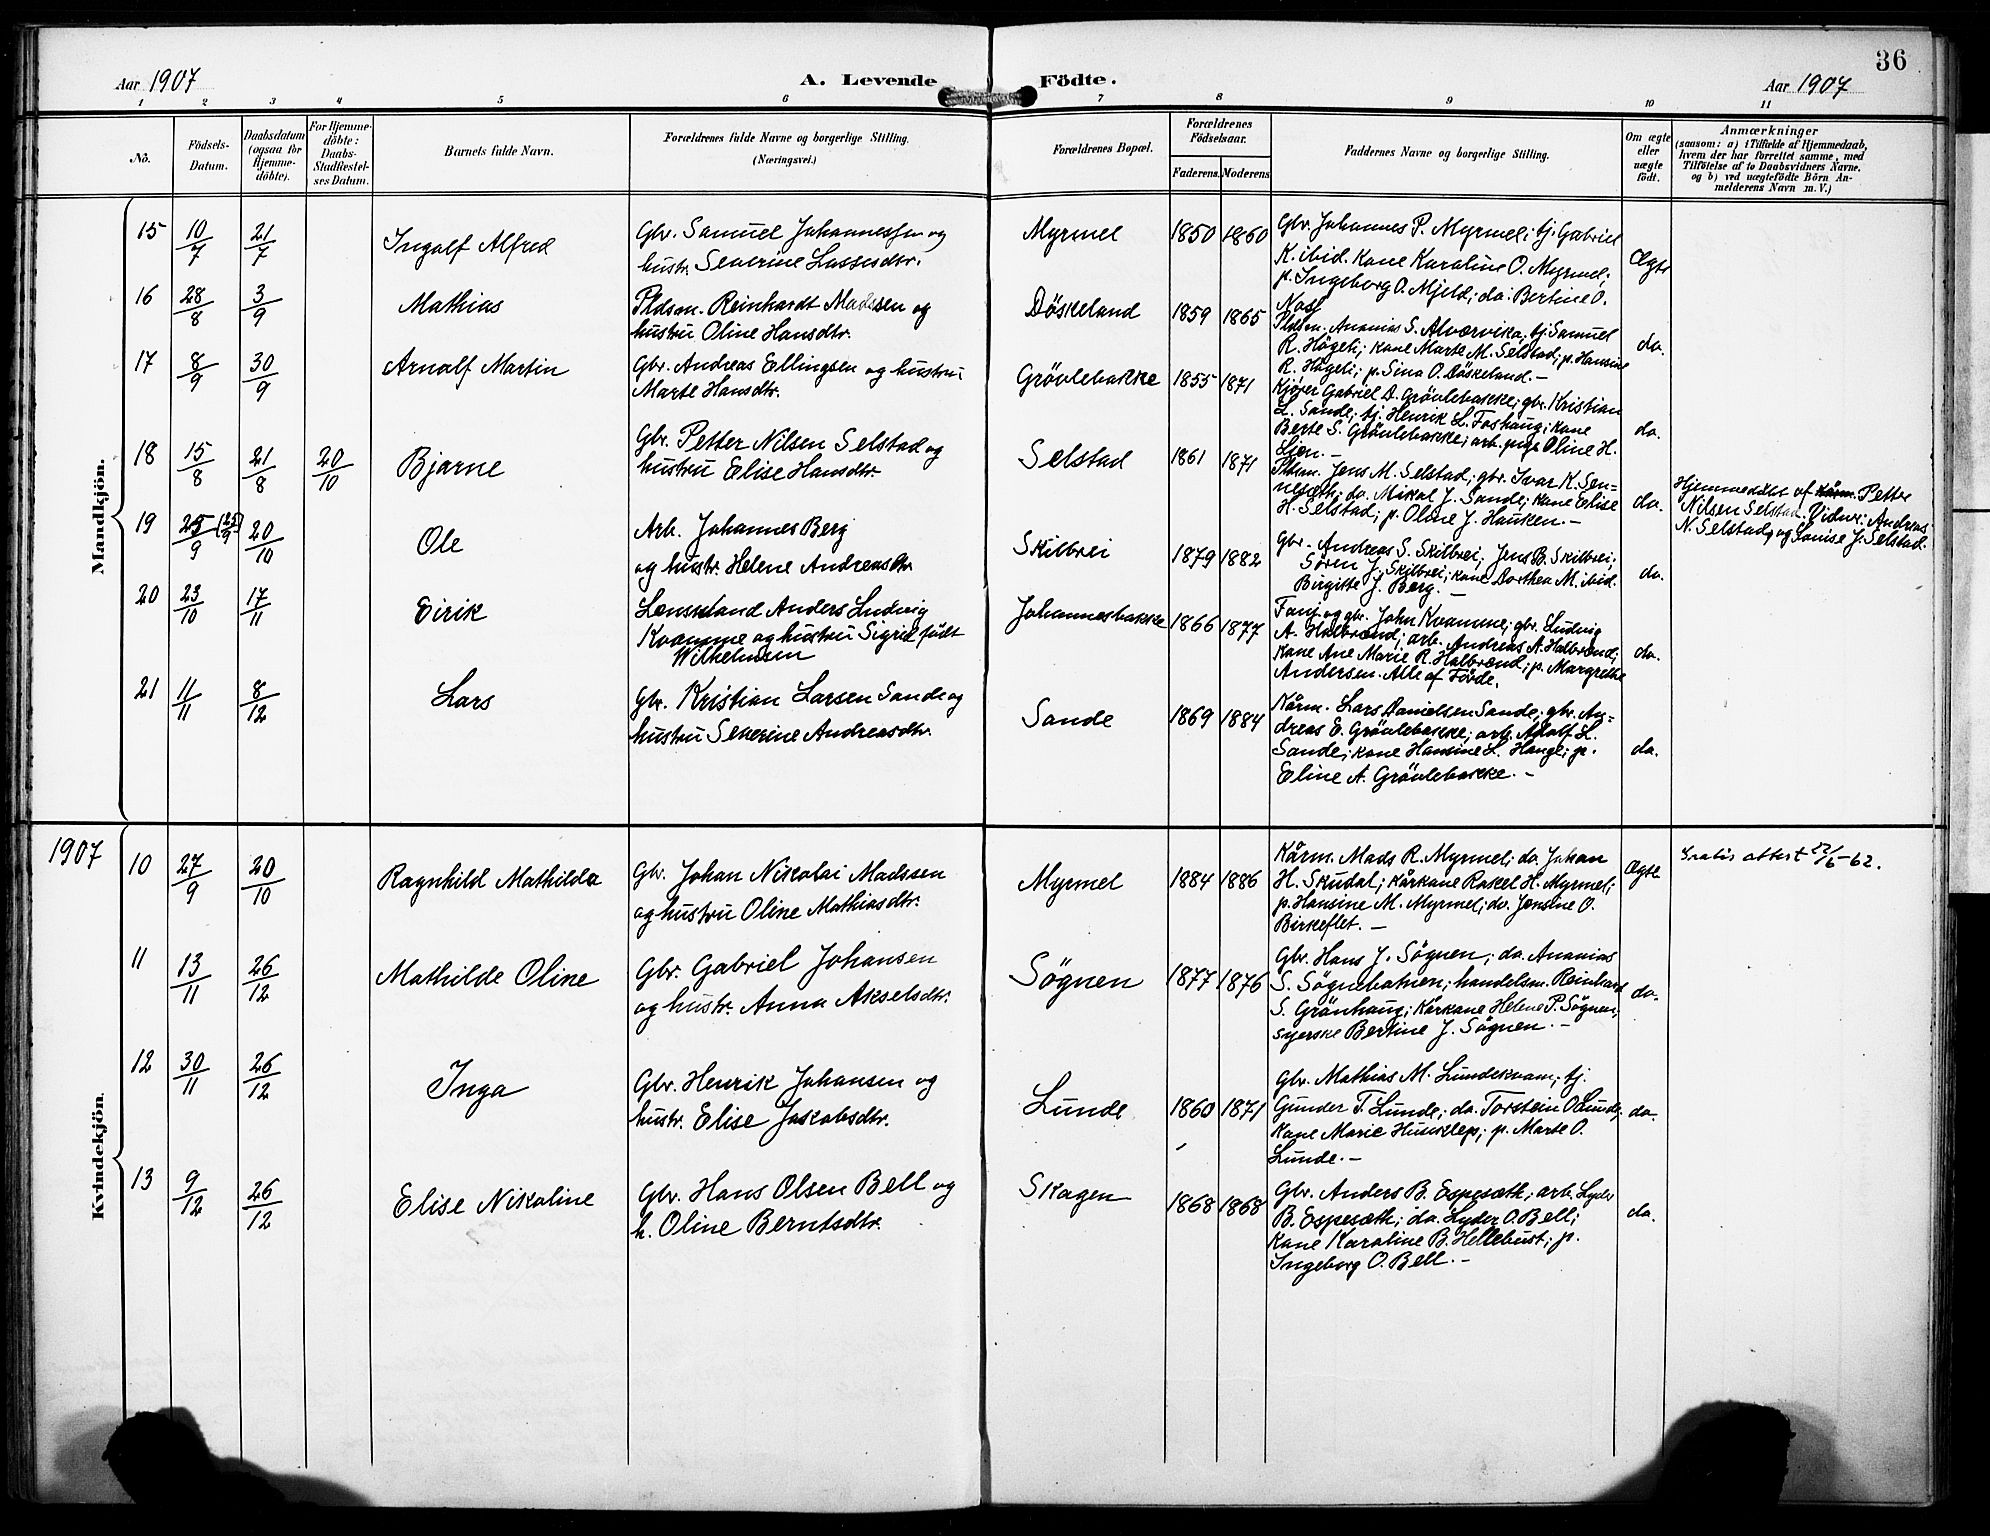 36
Aar 1907
A. Levende Födte.
Aar 1907
1 2 3 4 5 6 7 8 9 10 11
No.
Födsels-
Datum.
Daabsdatum
(ogsaa for
Hjemme-
döbte).
For Hjemme-
döbte:
Daabs-
Stadfæstel-
ses Datum.
Barnets fulde Navn.
Forældrenes fulde Navne og borgerlige Stilling.
(Næringsvei.)
Forældrenes Bopæl.
Forældrenes
Födselsaar.
Faderens. Moderens
Faddernes Navne og borgerlige Stilling.
Om ægte
eller
uægte
födt.
Anmærkninger
(saasom: a) i Tilfælde af Hjemmedaab,
hvem der har forrettet samme, med
Tilföielse af to Daabsvidners Navne,
og b) ved uægtefödte Börn An-
melderens Navn m. V.)
Mandkjön.
15
10/7
21/7
Ingolf Alfred
Gbr. Samuel Johannessen og
hustr. Severine Lassesdtr.
Myrmel
1850 1860
Gbr. Johannes P. Myrmel; tj. Gabriel
K. ibid. Kane Karoline O. Myrmel;
p. Ingeborg O. Mjeld; do. Bertine O.
Nos
Ægte
16
28/8
3/9
Mathias
Pldsm. Reinhardt Madssen og
hustru Oline Hansdtr.
Döskeland
1859 1865
Pldsm. Ananias S. Alværvika, tj. Samuel
R. Högeli; kane Marte M. Selstad; p. Hansine
R. Högeli; p. Sina O. Döskeland. -
do.
17
8/9
30/9
Arnolf Martin
Gbr. Andreas Ellingsen og hustru
Marte Hansdtr.
Grövlebakke
1855 1871
Kjörer Gabriel D. Grövlebakke; gbr. Kristian
L. Sande; tj. Henrik L. Foshaug; kane
Berte S. Grövlebakke; arb. pige Oline H.
Lien. -
do.
18
15/8
21/8
20/10
Bjarne
Gbr. Petter Nilsen Selstad og
hustru Elise Hansdtr.
Selstad
1861 1871
Pldsm. Jens M. Selstad; gbr. Ivar K. Sen=
neseth; do. Mikal J. Sande; kane Elise
H. Selstad; p. Oline J. Hauken. -
do.
Hjemmedöbt af Kårm. Petter
Nilsen Selstad. Vidner: Andreas
N. Selstad og Louise J. Selstad.
19
25/9
20/10
Ole
Arb. Johannes Berg
og hustr. Helene Andreasdtr.
Skilbrei
1879 1882
Gbr. Andreas S. Skilbrei; Jens B. Skilbrei;
Sören J. Skilbrei; kane Dorthea M. ibid.
Birgitte J. Berg. -
do.
20
23/10
17/11
Eirik
Lensmand Anders Ludvig
Kvamme og hustru Sigrid födt
Wilhelmsen
Johannesbakke
1866 1877
Forp. og gbr. John Kvamme; gbr. Ludvig
A. Halbrend; arb. Andreas A. Halbrend;
kane Ane Marie R. Halbrend; p. Margrethe
Andersen. Alle af Förde.
do.
21
11/11
8/12
Lars
Gbr. Kristian Larsen Sande og
hustru Severine Andreasdtr.
Sande
1869 1884
Kårm. Lars Danielsen Sande; gbr. An=
dreas E. Grövlebakke; arb. Adolf L.
Sande; kane Hansine L. Hauge; p.
Eline A. Grövlebakke. -
do.
1907
Kvindekjön.
10
27/9
20/10
Ragnhild Mathilda
Gbr. Johan Nikolai Madssen
og hustru Oline Mathiasdtr.
Myrmel
1884 1886
Kårm. Mads R. Myrmel; do. Johan
H. Skudal; kårkane Rakel H. Myrmel;
p. Hansine M. Myrmel; do. Jensine O.
Birkeflet. -
Ægte
Gratis attest 22/5-62.
11
13/11
26/12
Mathilde Oline
Gbr. Gabriel Johansen
og hustr. Anna Akselsdtr.
Sögnen
1877 1876
Gbr. Hans J. Sögnen; do. Ananias
S. Sögnebotnen; handelsm. Reinhard
S. Grönhaug; kårkane Helene P. Sögnen,
syerske Bertine J. Sögnen. -
do.
12
30/11
26/12
Inga
Gbr. Henrik Johansen og
hustr. Elise Jakobsdtr.
Lunde
1860 1871
Gbr. Mathias M. Lundekvam; tj.
Gunder T. Lunde; do. Torstein O. Lunde;
kane Marie Hunklep; p. Marte O.
Lunde. -
do.
13
9/12
26/12
Elise Nikoline
Gbr. Hans Olsen Bell og
h. Oline Berntsdtr.
Skogen
1868 1868
Gbr. Anders B. Espeseth; arb. Lyder
B. Espeseth; do. Lyder O. Bell;
kane Karoline B. Hellebust; p.
Ingeborg O. Bell. -
do.